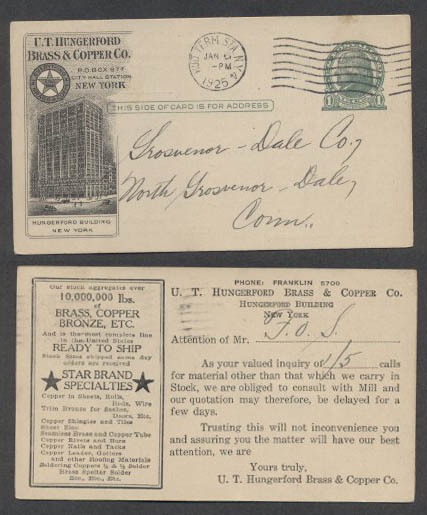 U.T. HUNGERFORD
BRASS & COPPER CO.
P.O. BOX 874
CITY HALL STATION
NEW YORK
HUD. TERM. STA. N.Y.
JAN
-PM
1925
1
1
THIS SIDE OF CARD IS FOR ADDRESS
Grosvenor-Dale Co.,
North Grosvenor-Dale,
Conn.
HUNGERFORD BUILDING
NEW YORK
Our stock aggregates over
10,000,000 lbs.
of
BRASS, COPPER
BRONZE, ETC.
And is the most complete line
in the United States
READY TO SHIP
Stock Sizes shipped same day
orders are received
STAR BRAND
SPECIALTIES
Copper in Sheets, Rolls,
Rods, Wire
Trim Bronze for Sashes,
Doors, Etc.
Copper Shingles and Tiles
Sheet Zinc
Seamless Brass and Copper Tube
Copper Rivets and Burs
Copper Nails and Tacks
Copper Leader, Gutters
and other Roofing Materials
Soldering Coppers ½ & ½ Solder
Brass Spelter Solder
Etc., Etc., Etc.
PHONE: FRANKLIN 5700
U. T. HUNGERFORD BRASS & COPPER CO.
HUNGERFORD BUILDING
NEW YORK
Attention of Mr. F.O.S.
As your valued inquiry of 1/5 calls
for material other than that which we carry in
Stock, we are obliged to consult with Mill and
our quotation may therefore, be delayed for a
few days.
Trusting this will not inconvenience you
and assuring you the matter will have our best
attention, we are
Yours truly,
U. T. Hungerford Brass & Copper Co.